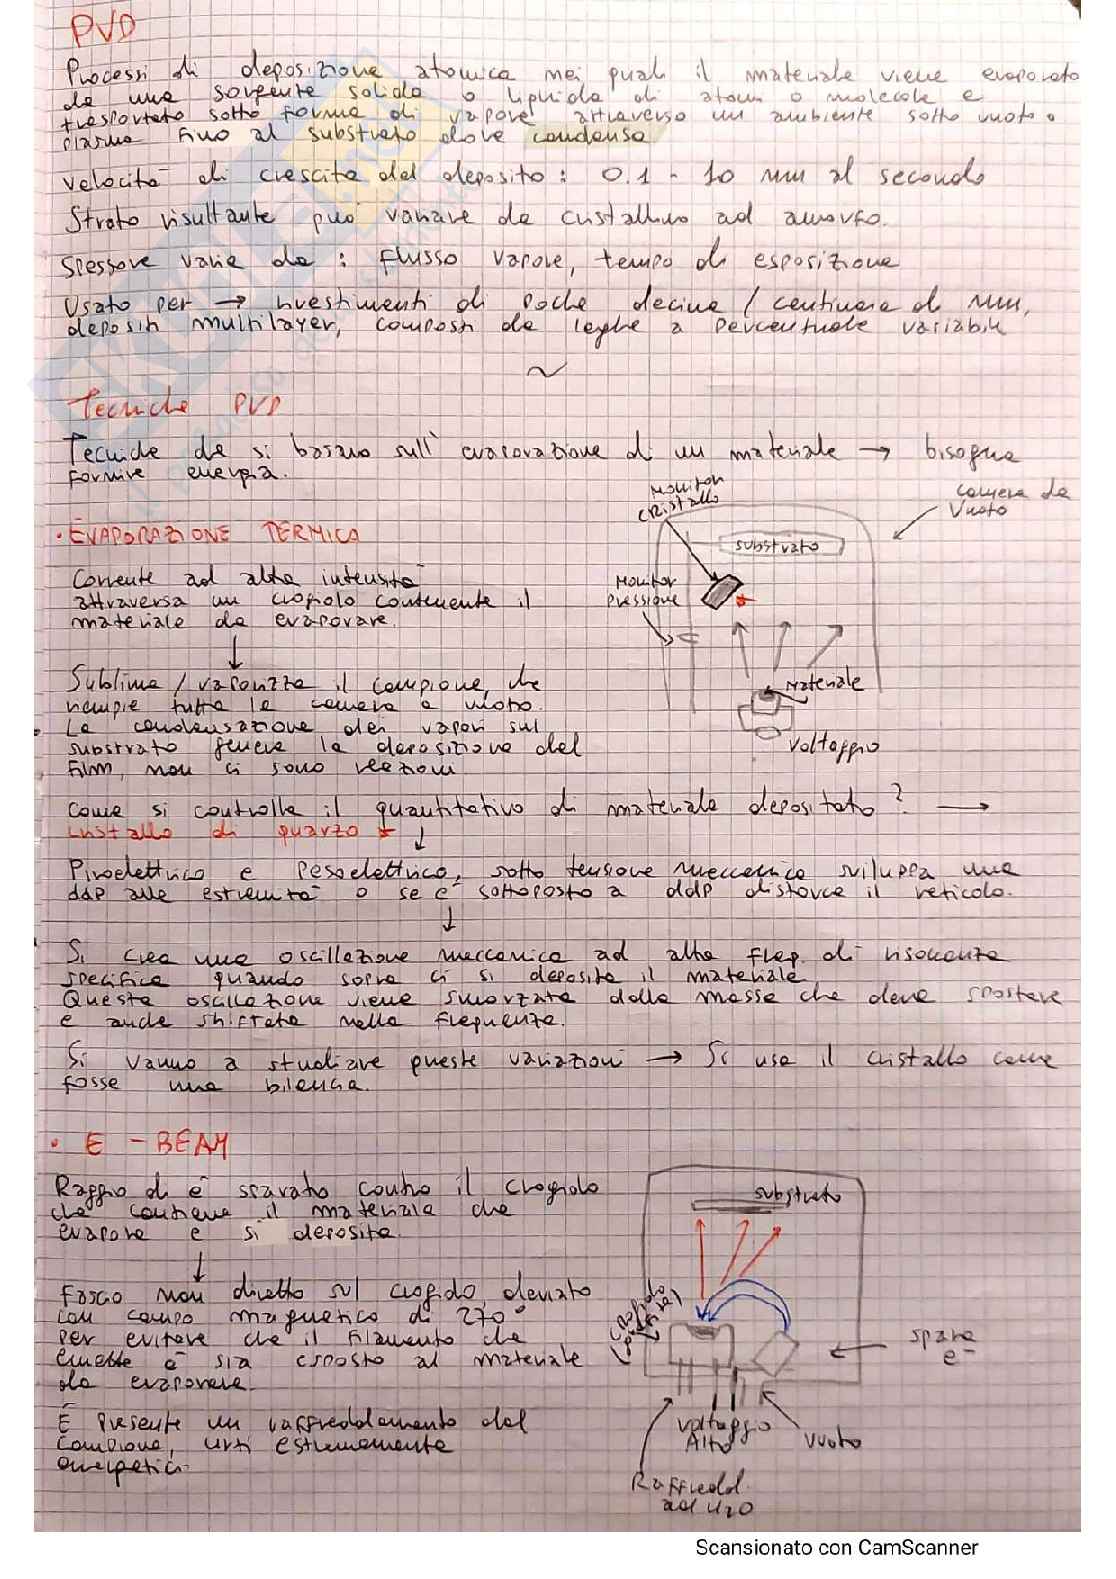 PVD
Processi di deposizione atomica nei quali il materiale viene evaporato
da una sorgente solida o liquida di atomi o molecole e
trasportato sotto forma di vapore attraverso un ambiente sotto vuoto o
plasma fino al substrato dove condensa
velocità di crescita del deposito: 0.1 - 10 nm al secondo
Strato risultante può variare da cristallino ad amorfo.
Spessore varia da: flusso vapore, tempo di esposizione
Usato per → rivestimenti di poche decine / centinaia di nm,
depositi multilayer, composti da leghe a percentuale variabile
~
Tecniche PVD
Tecniche che si basano sull'evaporazione di un materiale → bisogna
fornire energia.
• EVAPORAZIONE TERMICA
Corrente ad alta intensità
attraversa un crogiolo contenente il
materiale da evaporare.
↓
Sublima / vaporizza il campione, che
riempie tutta la camera a vuoto.
La condensazione dei vapori sul
substrato genera la deposizione del
film, non ci sono reazioni
Monitor
Cristallo
camera da
vuoto
substrato
Monitor
Pressione
Materiale
Voltaggio
Come si controlla il quantitativo di materiale depositato? →
cristallo di quarzo * ↓
Piroelettrico e Pesoelettrico, sotto tensione meccanica sviluppa una
ddp alle estremità o se è sottoposto a ddp distorce il reticolo.
↓
Si crea una oscillazione meccanica ad alta freq. di risonanza
specifica quando sopra ci si deposita il materiale
Questa oscillazione viene smorzata dalla massa che deve spostare
e anche shiftata nella frequenza.
Si vanno a studiare queste variazioni → Si usa il cristallo come
fosse una bilancia.
• E - BEAM
Raggio di e⁻ sparato contro il crogiolo
che contiene il materiale che
evapora e si deposita.
↓
Fascio non diretto sul crogiolo, deviato
con campo magnetico di 270°
per evitare che il filamento che
emette e⁻ sia esposto al materiale
da evaporare.
È presente un raffreddamento del
campione, urti estremamente
energetici.
substrato
Crogiolo
spara
e⁻
voltaggio
Alto
Vuoto
Raffredd.
ad H2O
Scansionato con CamScanner